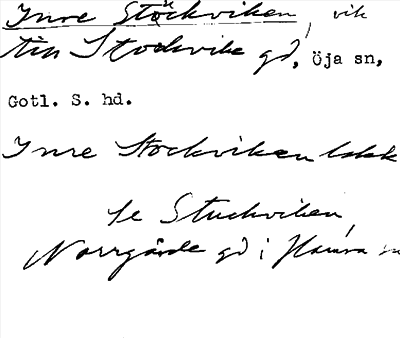 Inre Stockviken, vik
till Stockvike gd, Öja sn,
Gotl. S. hd.
Inre Stockviken
Se Stuckviken,
Norrgårde gd i Hamra sn